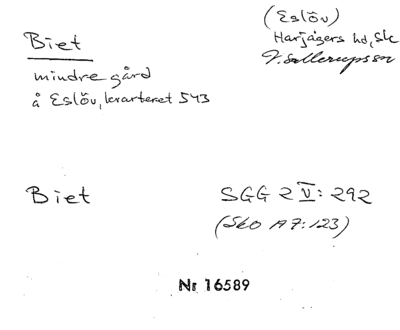 Biet
mindre gård
å Eslöv, kvarteret 543
(Eslöv)
Harjagers hd, Sk
V. Sallerupssn
Biet
SGG 2 V: 292
(Sko A7:123)
Nr 16589